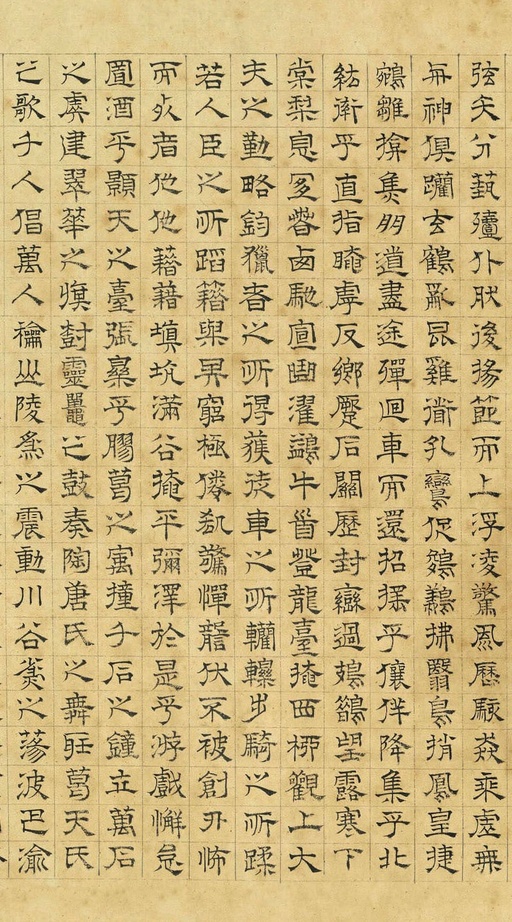 弦矢分蓺殪仆肰後揚節而上浮凌驚風歷駭猋乘虛無
與神俱躪玄鶴亂昆雞遒孔鸞促鵔鸃拂翳鳥捎鳳皇捷
鵷雛揜焦朋道盡途殫迴車而還招搖乎儴佯降集乎北
紘率乎直指晻虖反鄉蹷石關歷封巒過鳷鵲望露寒下
棠梨息宜春西馳宣曲濯鷁牛首登龍臺掩西柳觀士大
夫之勤略鈞獵者之所得獲徒車之所轥轢步騎之所蹂
若人臣之所蹈籍與其窮極倦谻驚憚讋伏不被創刃怖
而死者他他藉藉填坑滿谷掩平彌澤於是乎游戲懈怠
置酒乎顥天之臺張樂乎膠葛之寓撞千石之鐘立萬石
之虡建翠華之旗樹靈鼉之鼓奏陶唐氏之舞聽葛天氏
之歌千人倡萬人龢山陵為之震動川谷為之蕩波巴渝